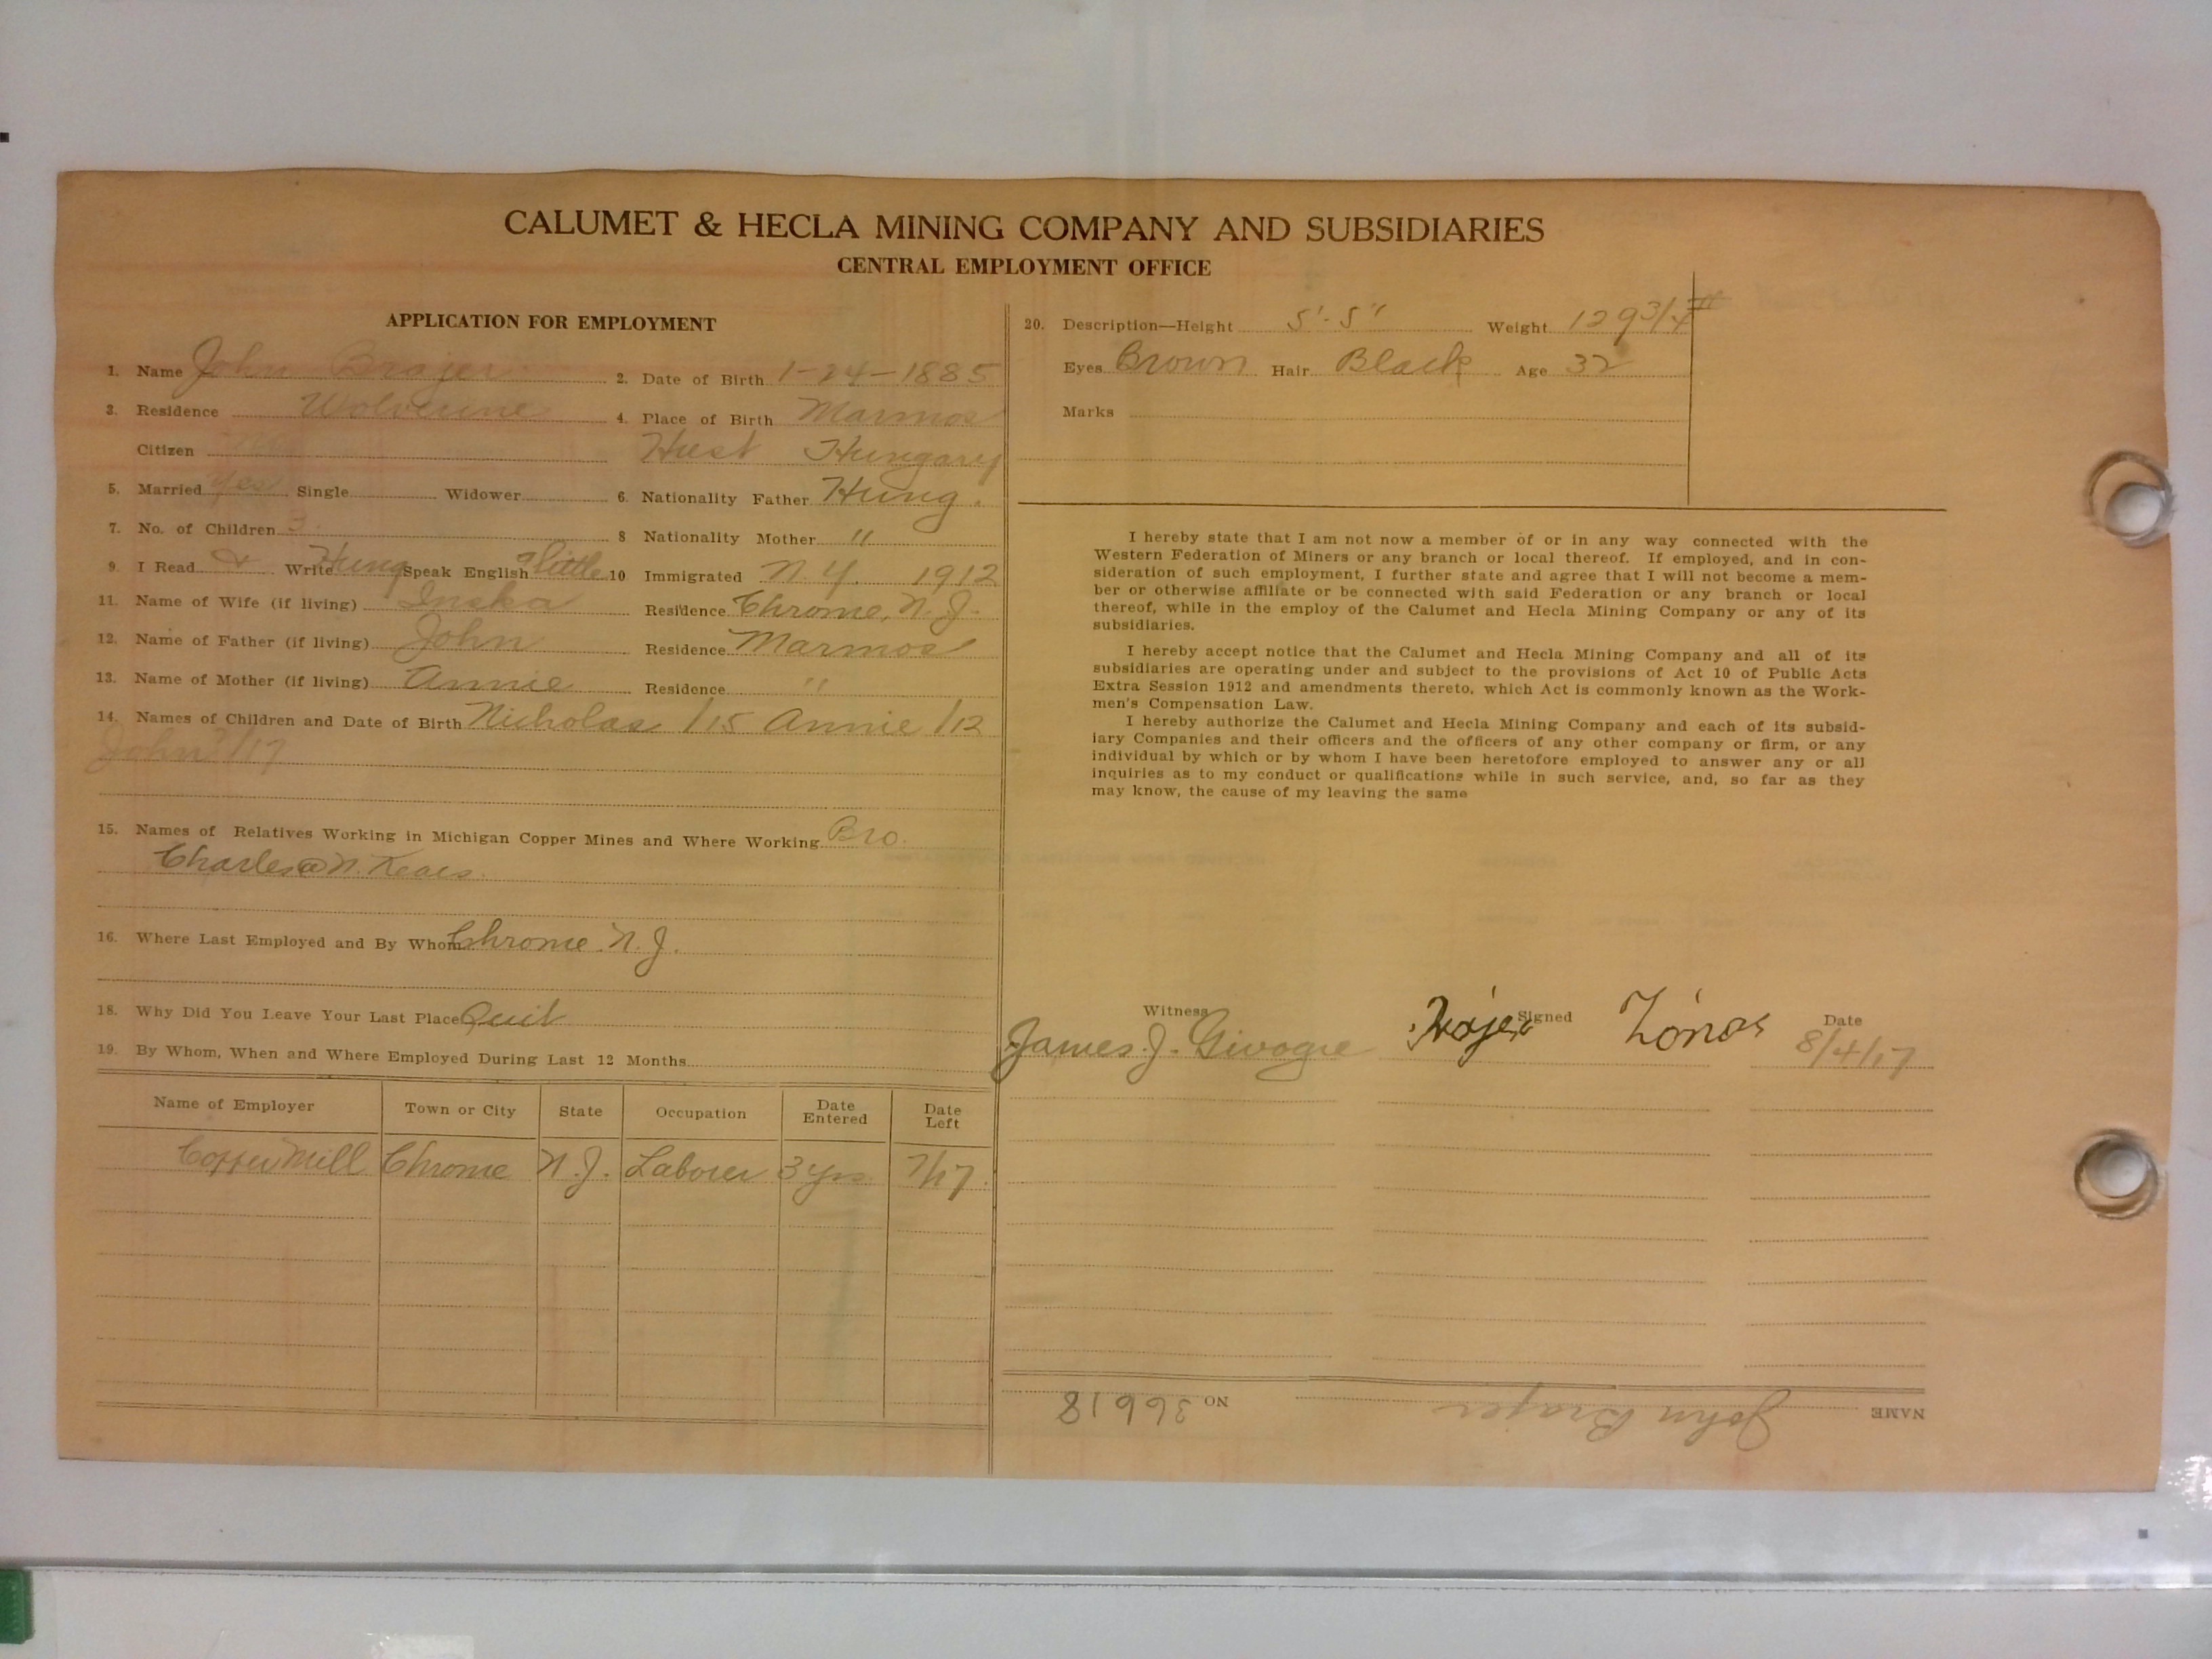 CALUMET & HECLA MINING COMPANY AND SUBSIDIARIES
CENTRAL EMPLOYMENT OFFICE
APPLICATION FOR EMPLOYMENT
1. Name John Brajer 2. Date of Birth 1-24-1885
3. Residence Wolverine 4. Place of Birth Marmos
Citizen Hust Hungary
5. Married yes Single Widower 6. Nationality Father Hung.
7. No. of Children 3 8 Nationality Mother "
9. I Read & Write Hung Speak English a little 10 Immigrated N.Y. 1912
11. Name of Wife (if living) Residence Chrome, N.J.
12. Name of Father (if living) John Residence Marmos
13. Name of Mother (if living) Annie Residence "
14. Names of Children and Date of Birth Nicholas /15 Annie /12
John /17
15. Names of Relatives Working in Michigan Copper Mines and Where Working Bro.
Charles @ N. Kears.
16. Where Last Employed and By Whom Chrome N.J.
18. Why Did You Leave Your Last Place Quit
19. By Whom, When and Where Employed During Last 12 Months
Name of Employer Town or City State Occupation Date Entered Date Left
Copper Mill Chrome N.J. Laborer 3 yrs. 7/17.
20. Description—Height 5'-5" Weight 129 3/4 #
Eyes Brown Hair Black Age 32
Marks
I hereby state that I am not now a member of or in any way connected with the
Western Federation of Miners or any branch or local thereof. If employed, and in con-
sideration of such employment, I further state and agree that I will not become a mem-
ber or otherwise affiliate or be connected with said Federation or any branch or local
thereof, while in the employ of the Calumet and Hecla Mining Company or any of its
subsidiaries.
I hereby accept notice that the Calumet and Hecla Mining Company and all of its
subsidiaries are operating under and subject to the provisions of Act 10 of Public Acts
Extra Session 1912 and amendments thereto, which Act is commonly known as the Work-
men's Compensation Law.
I hereby authorize the Calumet and Hecla Mining Company and each of its subsid-
iary Companies and their officers and the officers of any other company or firm, or any
individual by which or by whom I have been heretofore employed to answer any or all
inquiries as to my conduct or qualifications while in such service, and, so far as they
may know, the cause of my leaving the same
Witness Signed Date
James J. 8/4/17
NAME John Brajer NO 36618